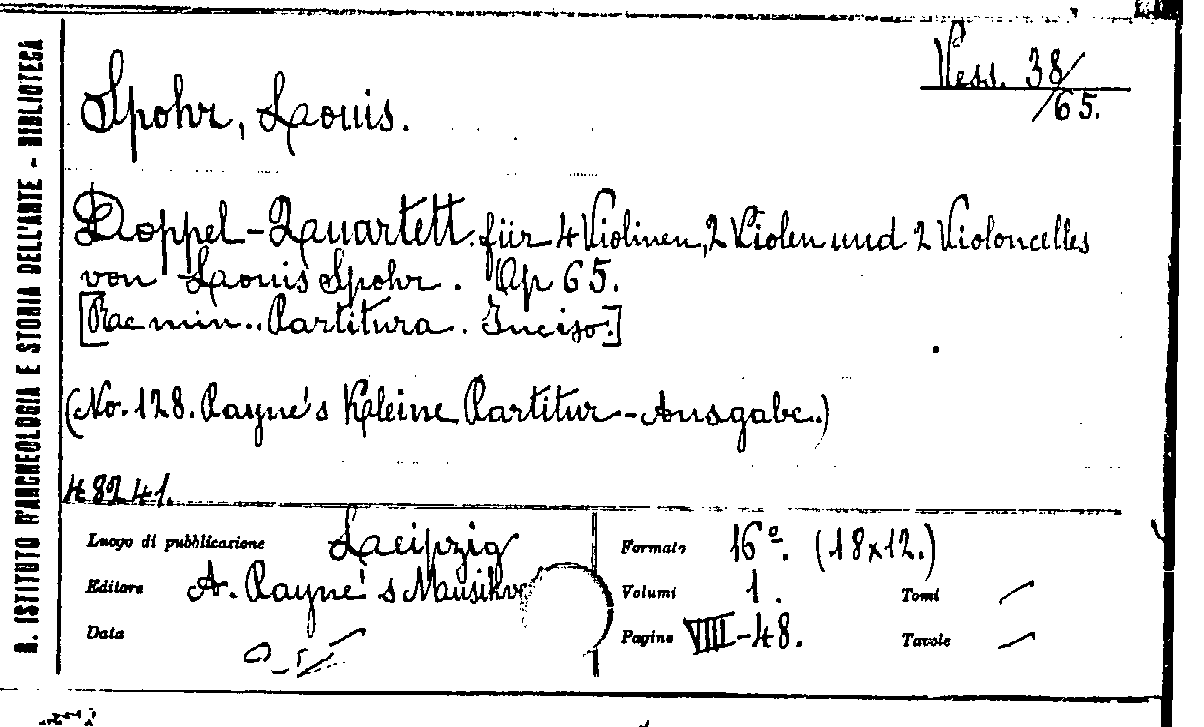 R. ISTITUTO D'ARCHEOLOGIA E STORIA DELL'ARTE - BIBLIOTECA
Vess. 38/
/65.
Spohr, Louis.
Doppel-Quartett. für 4 Violinen, 2 Violen und 2 Violoncelles
von Louis Spohr. Op 65.
[Re min.. Partitura. Inciso.]
(No. 128. Payne's Kleine Partitur-Ausgabe.)
48241.
Luogo di pubblicazione Leipzig
Editore A. Payne's Musikv
Data
Formato 16º. (18x12.)
Volumi 1. Tomi /
Pagine VIII-48. Tavole /